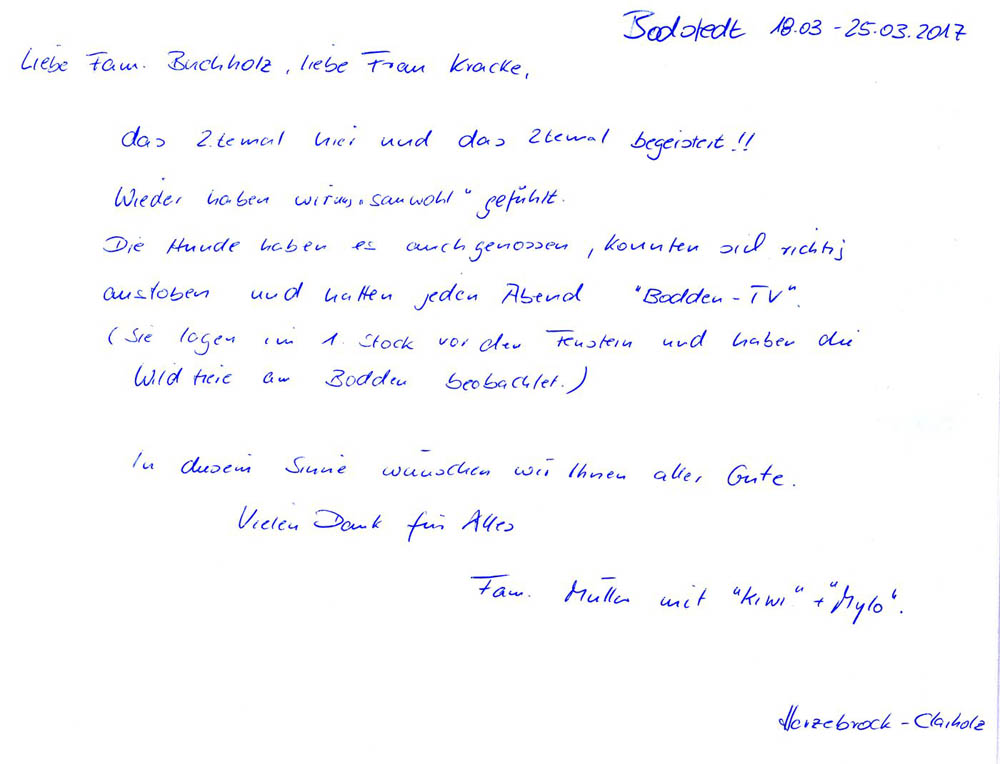 Bodstedt 18.03 - 25.03.2017
Liebe Fam. Buchholz, liebe Frau Kracke,
das 2.temal hier und das 2temal begeistert!!
Wieder haben wir uns „sauwohl" gefühlt.
Die Hunde haben es auch genossen, konnten sich richtig
austoben und hatten jeden Abend "Bodden-TV".
(Sie lagen im 1. Stock vor den Fenstern und haben die
Wildtiere am Bodden beobachtet.)
In diesem Sinne wünschen wir Ihnen alles Gute.
Vielen Dank für Alles
Fam. Müller mit "Kiwi" + "Mylo".
Herzebrock - Clarholz